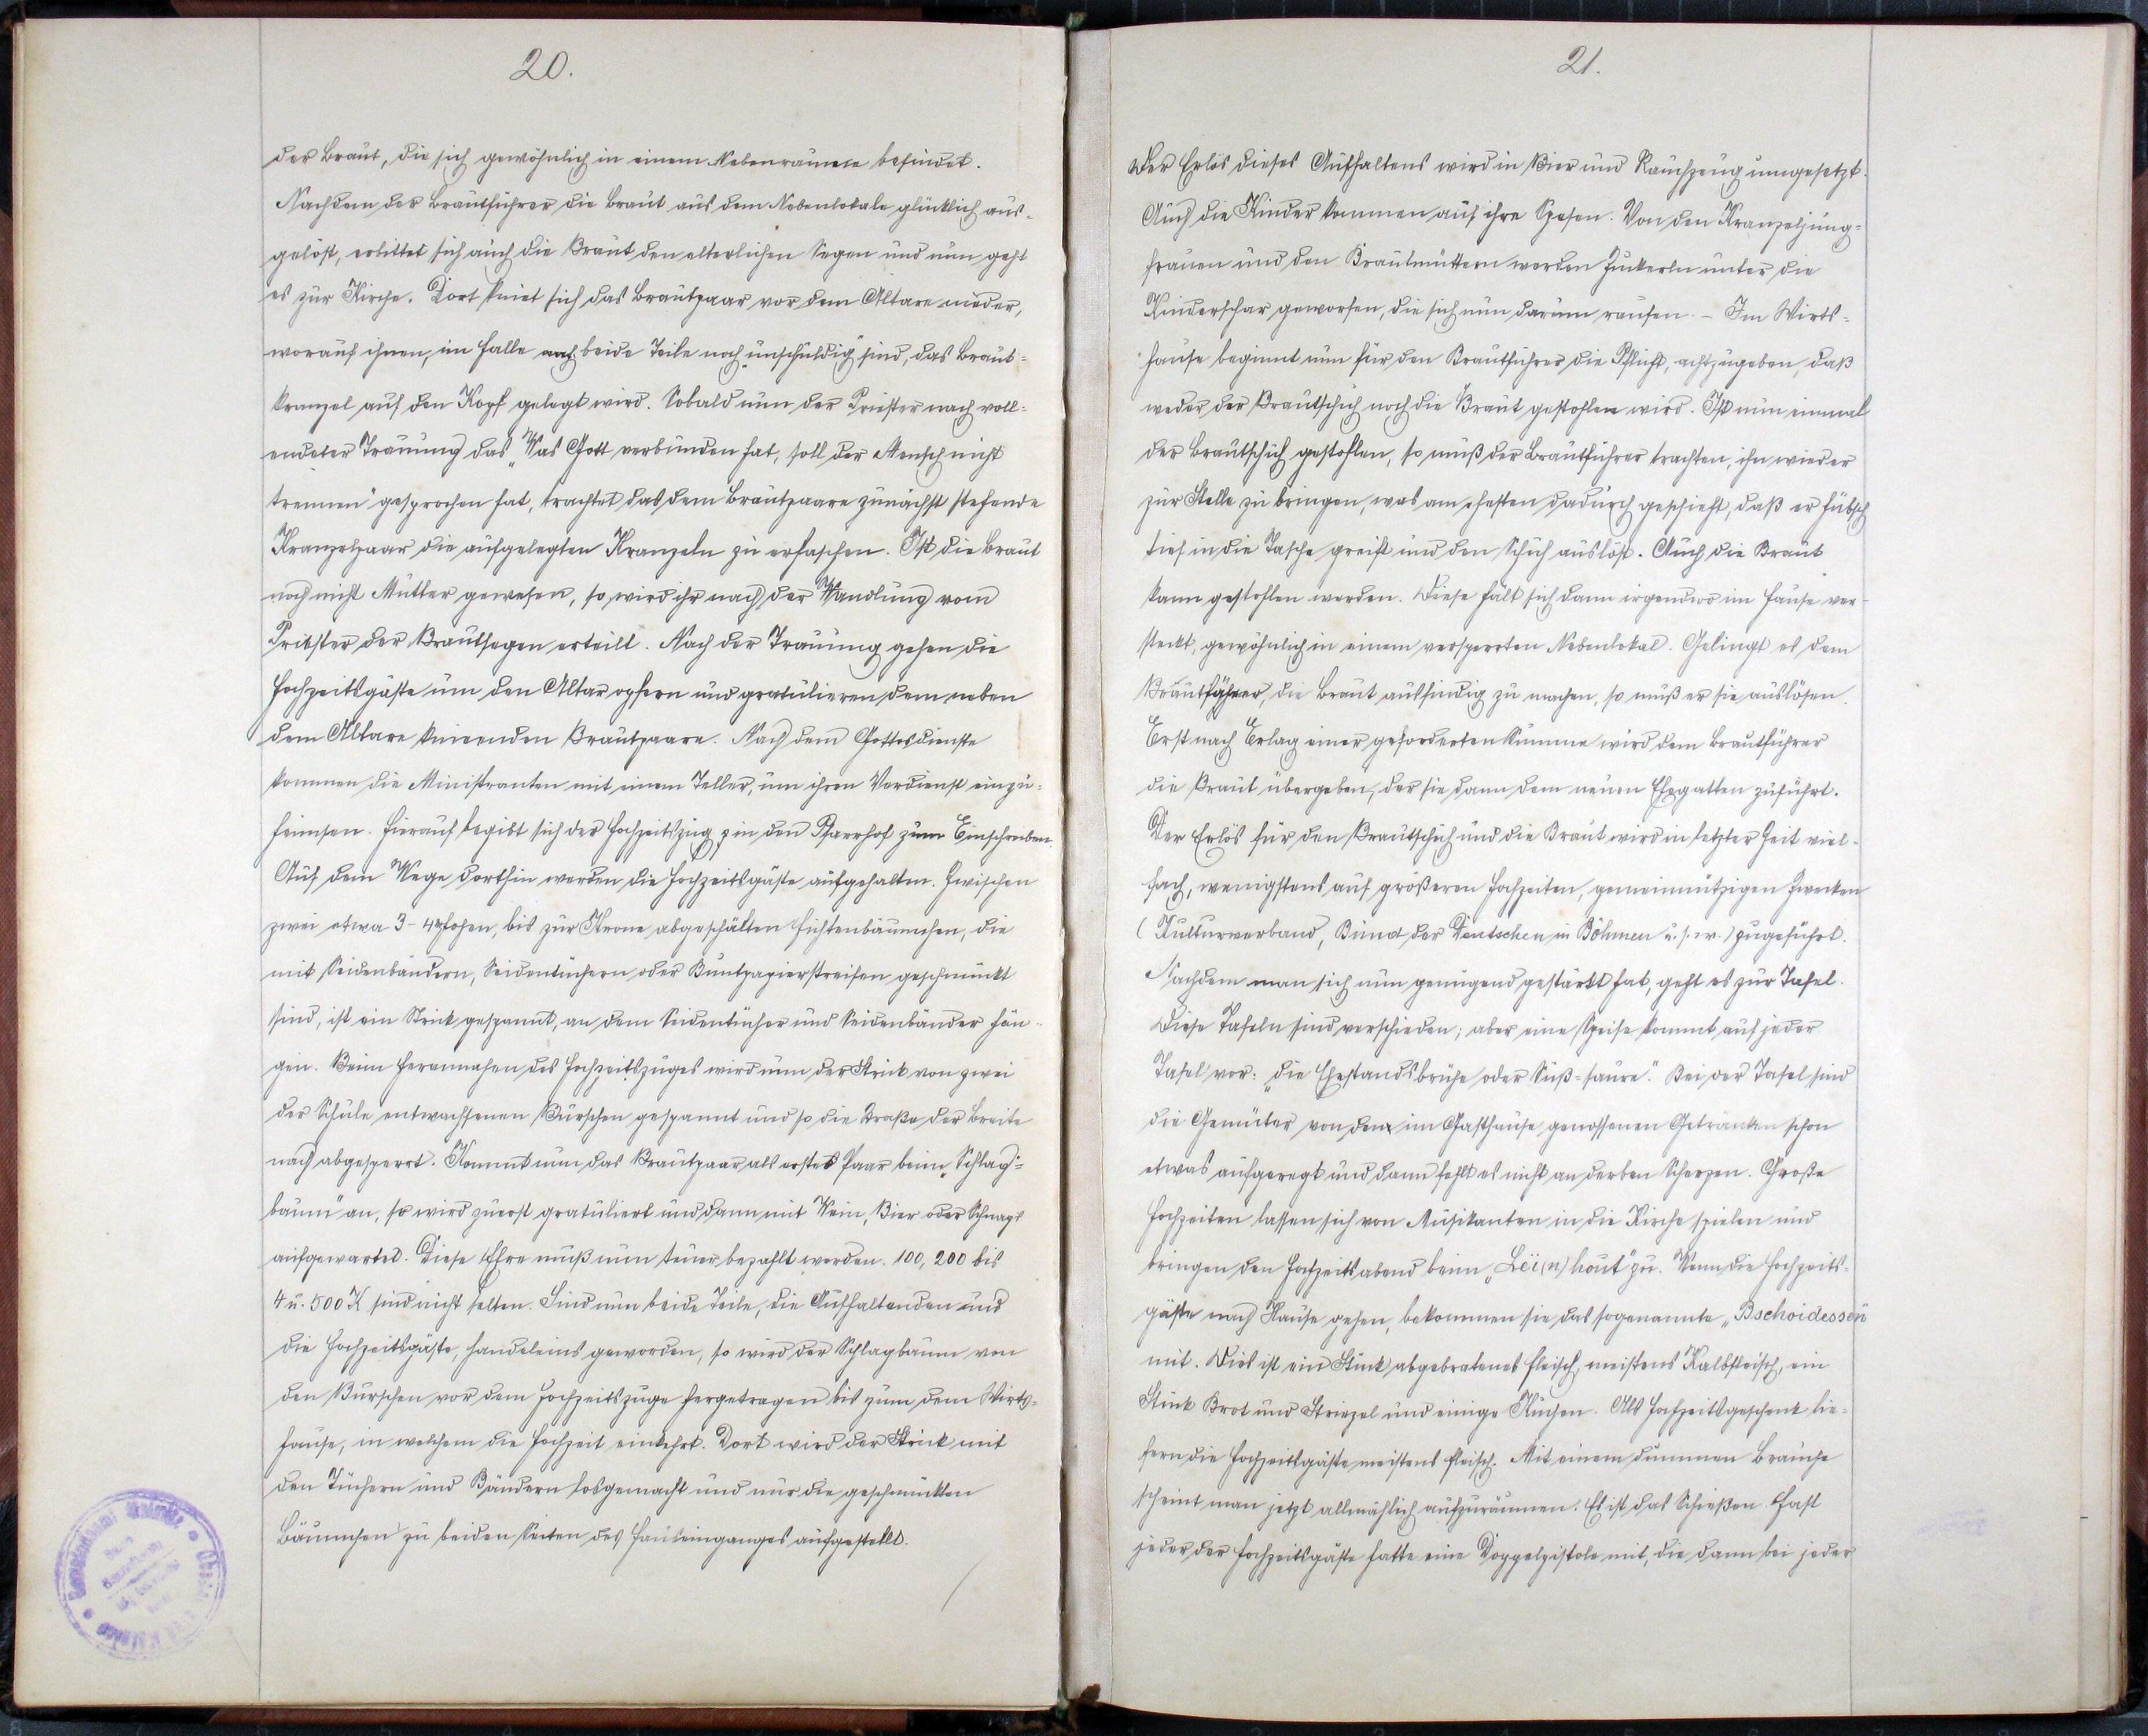 20.
der Braut, die sich gewöhnlich in einem Nebenraume befindet.
Nachdem der Brautführer die Braut aus dem Nebenlokale glücklich aus-
gelöst, erbittet sich auch die Braut den elterlichen Segen und nun geht
es zur Kirche. Dort kniet sich das Brautpaar vor dem Altare nieder,
worauf ihnen, im Falle noch beide Teile noch „unschuldig“ sind, das Braut-
kranzel auf den Kopf gelegt wird. Sobald nun der Priester nach voll-
endeter Trauung das „Was Gott verbunden hat, soll der Mensch nicht
trennen“ gesprochen hat, trachtet das dem Brautpaare zunächst stehende
Kranzelpaar die aufgelegten Kranzeln zu erhaschen. Ist die Braut
noch nicht Mutter gewesen, so wird ihr nach der Wandlung vom
Priester der Brautsegen erteilt. Nach der Trauung gehen die
Hochzeitsgäste um den Altar opfern und gratulieren dem neben
dem Altare knieenden Brautpaare. Nach dem Gottesdienste
kommen die Ministranten mit einem Teller, um ihren Verdienst einzu-
heimsen. Hierauf begibt sich der Hochzeitszug in den Pfarrhof zum Einschreiben.
Auf dem Wege dorthin werden die Hochzeitsgäste aufgehalten. Zwischen
zwei etwa 3-4 m hohen, bis zur Krone abgeschälten Fichtenbäumchen, die
mit Seidenbändern, Seidentüchern oder Buntpapierstreifen geschmückt
sind, ist ein Strick gespannt, an dem Seidentücher und Seidenbänder hän-
gen. Beim Herannahen des Hochzeitszuges wird nun der Strick von zwei
der Schule entwachsenen Burschen gespannt und so die Straße der Breite
nach abgesperrt. Kommt nun das Brautpaar als erstes Paar beim „Schlag-
baum“ an, so wird zuerst gratuliert und dann mit Wein, Bier oder Schnaps
aufgewartet. Diese Ehre muß nun teuer bezahlt werden. 100, 200 bis
4 u. 500 K sind nicht selten. Sind nun beide Teile, die Aufhaltenden und
die Hochzeitsgäste, handeleins geworden, so wird der Schlagbaum von
den Burschen vor dem Hochzeitszuge hergetragen bis zum dem Wirts-
hause, in welchem die Hochzeit einkehrt. Dort wird der Strick mit
den Tüchern und Bändern losgemacht und nur die geschmückten
Bäumchen zu beiden Seiten des Hauseinganges aufgestellt.
21.
Der Erlös dieses Aufhaltens wird in Bier und Rauchzeug umgesetzt.
Auch die Kinder kommen auf ihre Spesen. Von den Kranzeljung-
frauen und den Brautmüttern werden Zuckerln unter die
Kinderschar geworfen, die sich nun darum raufen. - Im Wirts-
hause beginnt nun für den Brautführer die Pflicht, achtzugeben, daß
weder der Brautschuh noch die Braut gestohlen wird. Ist nun einmal
der Brautschuh gestohlen, so muß der Brautführer trachten, ihn wieder
zur Stelle zu bringen, was am ehesten dadurch geschieht, daß er hübsch
tief in die Tasche greift und den Schuh auslöst. Auch die Braut
kann gestohlen werden. Diese hält sich dann irgendwo im Hause ver-
steckt, gewöhnlich in einem versperrten Nebenlokal. Gelingt es dem
Brautführer, die Braut ausfindig zu machen, so muß er sie auslösen.
Erst nach Erlag einer geforderten Summe wird dem Brautführer
die Braut übergeben, der sie dann dem neuen Ehegatten zuführt.
Der Erlös für den Brautschuh und die Braut wird in letzter Zeit viel-
fach, wenigstens auf größeren Hochzeiten, gemeinnützigen Zwecken
(Kulturverband, Bund der Deutschen in Böhmen u.s.w.) zugeführt.
Nachdem man sich nun genügend gestärkt hat, geht es zur Tafel.
Diese Tafeln sind verschieden; aber eine Speise kommt auf jeder
Tafel vor: „die Ehestandsbrühe oder Süß-saure“. Bei der Tafel sind
die Gemüter von den im Gasthause genossenen Getränken schon
etwas aufgeregt und dann fehlt es nicht an derben Scherzen. Große
Hochzeiten lassen sich von Musikanten in die Kirche spielen und
bringen den Hochzeitsabend beim „Lëi(n)hout“ zu. Wenn die Hochzeits-
gäste nach Hause gehen, bekommen sie das sogenannte „Bschoidessen“
mit. Dies ist ein Stück abgebratenes Fleisch, meistens Kalbfleisch, ein
Stück Brot und Striezel und einige Kuchen. Als Hochzeitsgeschenk lie-
fern die Hochzeitsgäste meistens Fleisch. Mit einem dummen Brauche
scheint man jetzt allmählich aufzuräumen. Es ist das Schießen. Fast
jeder der Hochzeitsgäste hatte eine Doppelpistole mit, die dann bei jeder